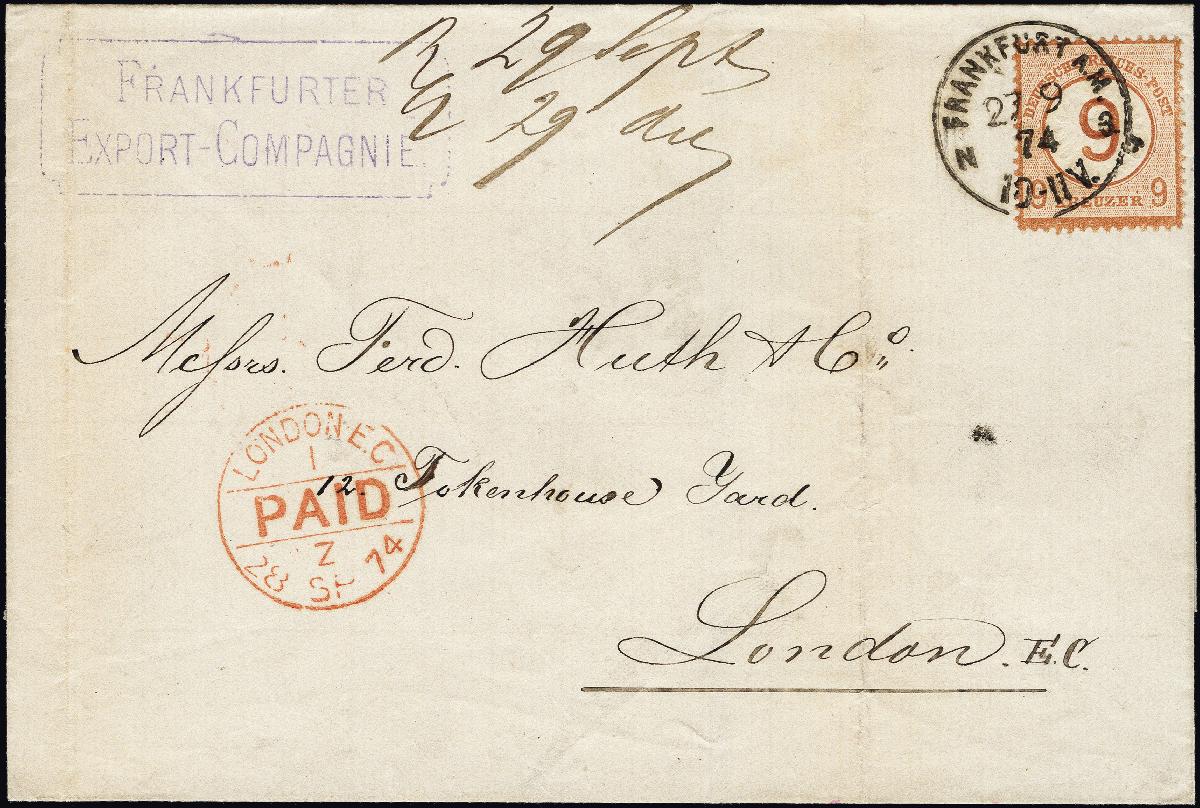 FRANKFURTER
EXPORT-COMPAGNIE
R 29 Sept
A 29 do
FRANKFURT A.M.
27 9
74
10-11 V.
DEUTSCHE REICHS-POST
9
9 KREUZER 9
Messrs. Ferd. Huth & Co.
12. Tokenhouse Yard.
London. E.C.
LONDON E.C
1
PAID
Z
28 SP 74